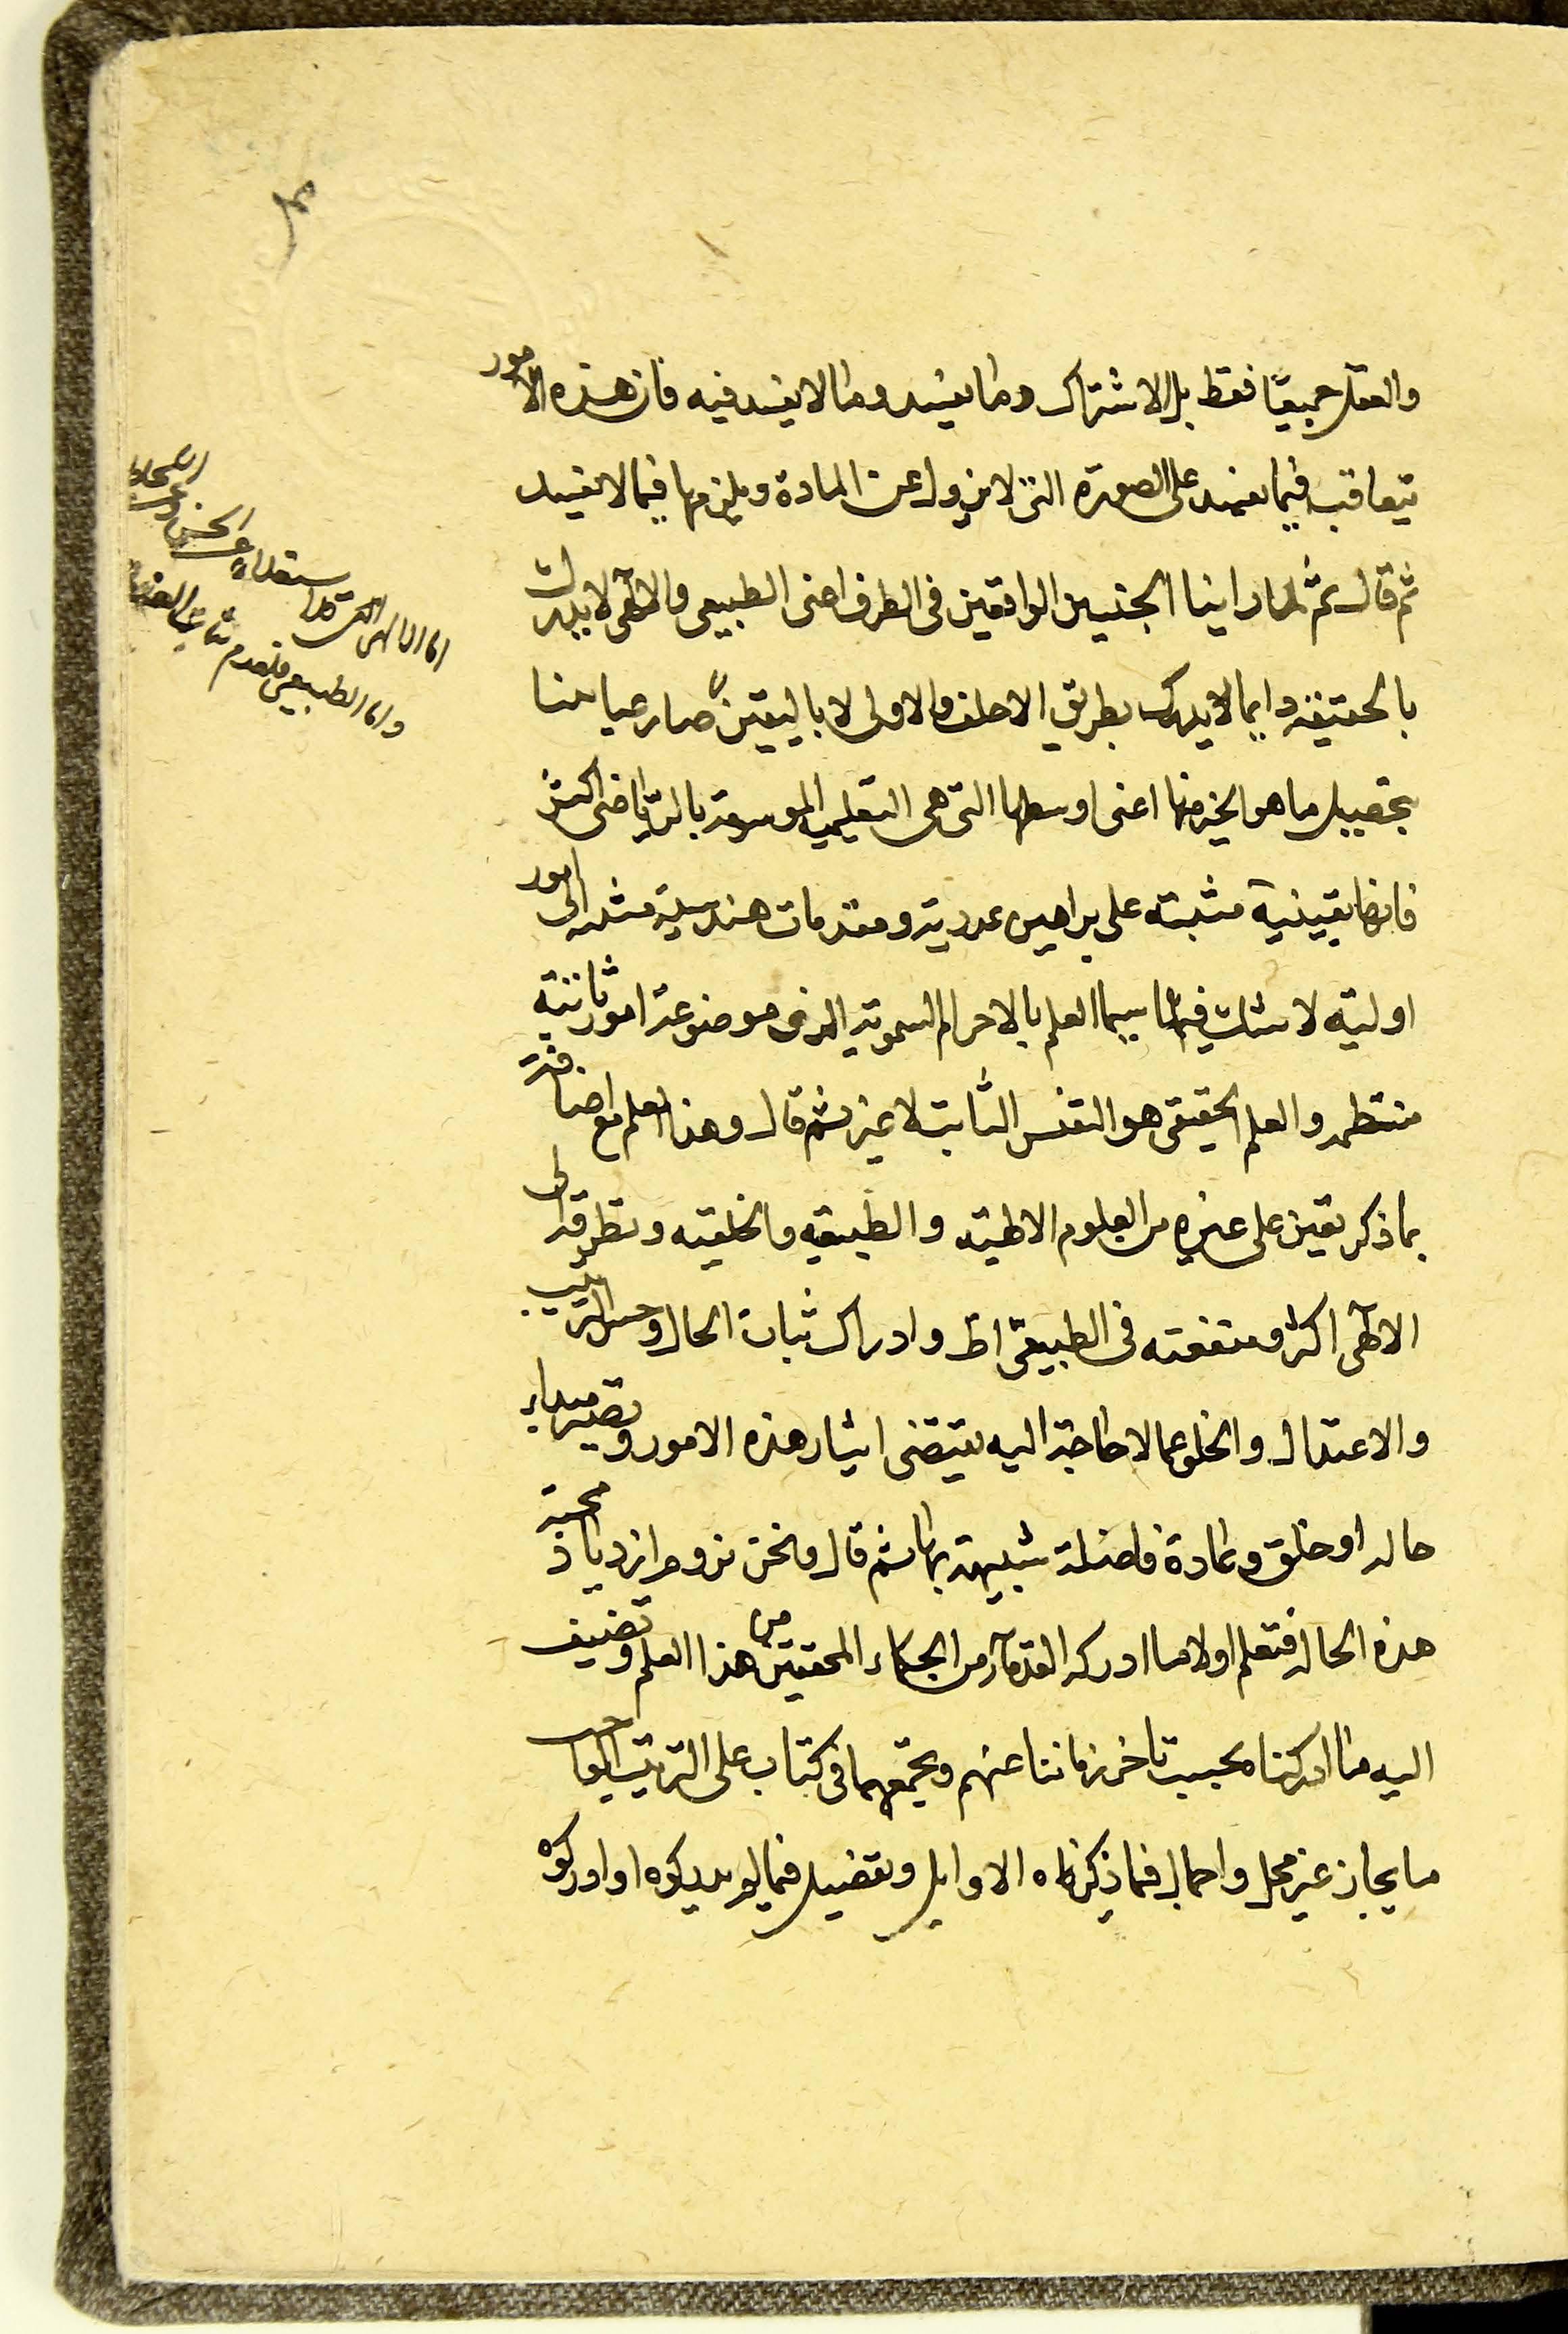 والعقل جميعًا فقط بل الاشتراك وما يفسد وما لا يفسد فيه فان هذه الامور
يتعاقب فيما يفسد على الصورة التى لا يزول عن المادة ويلزمها فيما لا يفسد
ثم قال ثم لما راينا الجنسين الواقعين فى الطرف اعنى الطبيعى والالهى لا يدرك
بالحقيقة وانما لا يدرك بطريق الاخلق والاولى لا باليقين صار عيا منا
بتحصيل ما هو الخير منها اعنى اوسطها التى هى التعليمية الموسومة بالرياضى اكثر
فانها يقينية مثبتة على براهين عددية ومقدمات هندسية مثله الى امور
اولية لا شك فيها سيما العلم بالاجرام السموية الذى موضوعة امور ثابتة
منتظمة والعلم الحقيقى هو النفس الثابت لا غير ثم قال وهذا العلم مع اضافته
بما ذكر يعين على غيره من العلوم الالهية والطبيعية والخلقية وتطرقه الى
الالهى اكثر ومنفعته فى الطبيعى اظ وادراك ثبات الحال وحسن الترتيب
والاعتدال والخلو عما لا حاجة اليه يقتضى ايثار هذه الامور وتصير مبداء
حاله او خلق وعادة فاضلة شبيهة بها ثم قال ونحن نروم ازدياد محبة
هذه الحال فنعلم اولا ما ادركه القدماء من الحكماء المحققين من هذا العلم وتضيف
اليه ما ادركنا بحسب تاخر زماننا عنهم ونجمعهما فى كتاب على الترتيب الواجب
ما يجاز غير مخل واجمال فيما ذكرناه الاوايل وتفصيل فيما لم يدركوه او ادركوه
اما الالهى
واما الطبيعى فلعدم ثبات